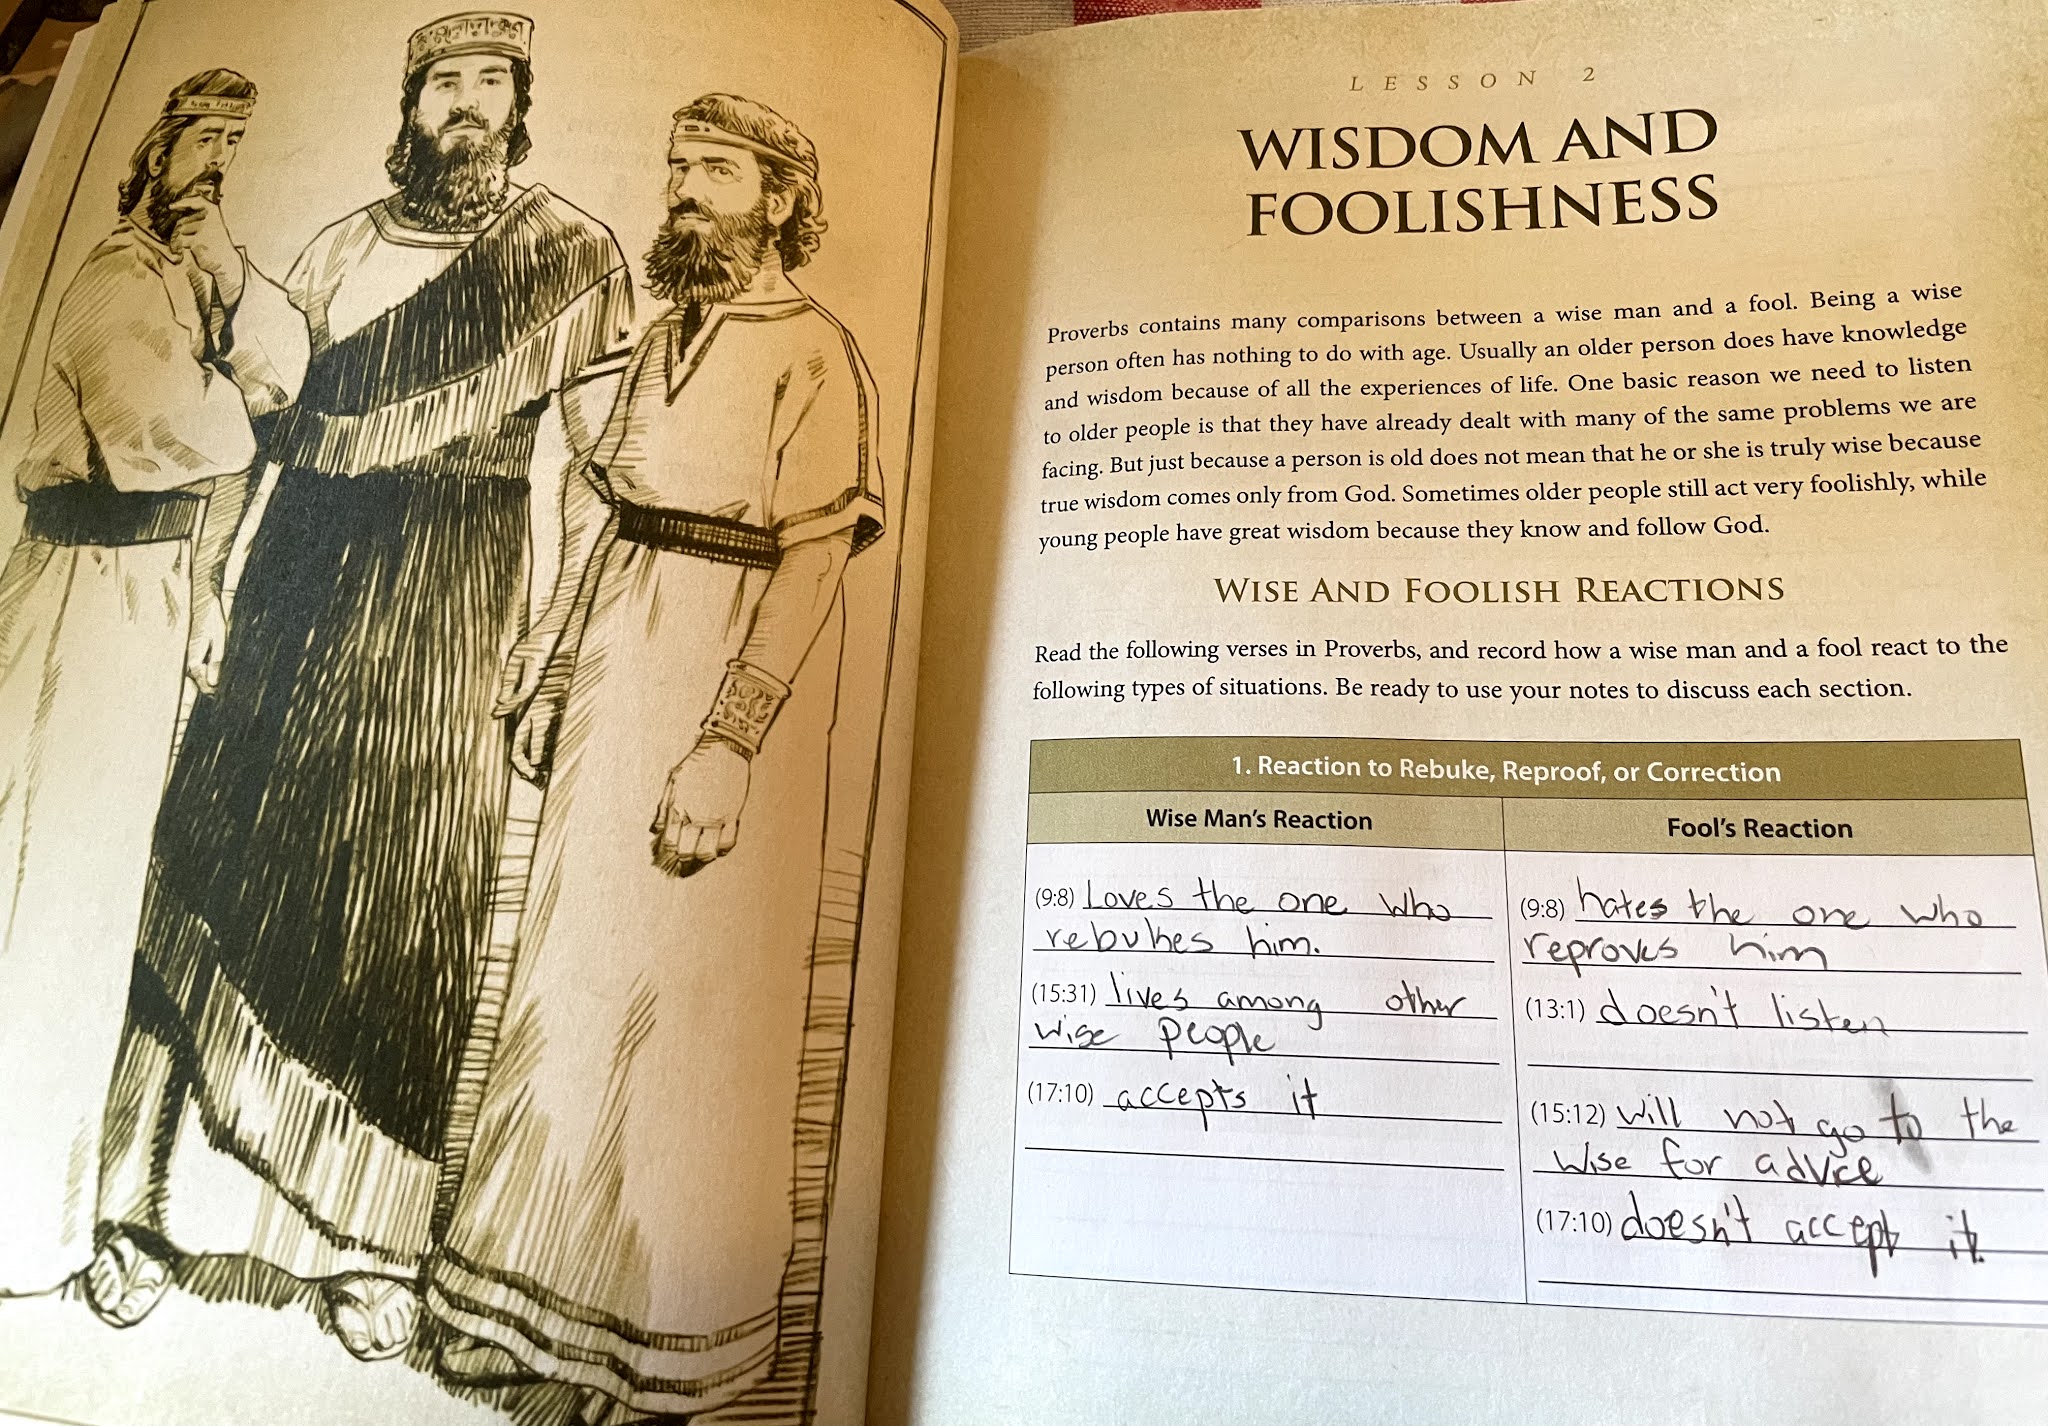 LESSON 2
WISDOM AND
FOOLISHNESS
Proverbs contains many comparisons between a wise man and a fool. Being a wise
person often has nothing to do with age. Usually an older person does have knowledge
and wisdom because of all the experiences of life. One basic reason we need to listen
to older people is that they have already dealt with many of the same problems we are
facing. But just because a person is old does not mean that he or she is truly wise because
true wisdom comes only from God. Sometimes older people still act very foolishly, while
young people have great wisdom because they know and follow God.
WISE AND FOOLISH REACTIONS
Read the following verses in Proverbs, and record how a wise man and a fool react to the
following types of situations. Be ready to use your notes to discuss each section.
1. Reaction to Rebuke, Reproof, or Correction
Wise Man's Reaction
(9:8) Loves the one who
rebukes him.
(15:31) lives among other
wise people
(17:10) accepts it
Fool's Reaction
(9:8) hates the one who
reproves him
(13:1) doesn't listen
(15:12) will not go to the
wise for advice
(17:10) doesn't accept it.